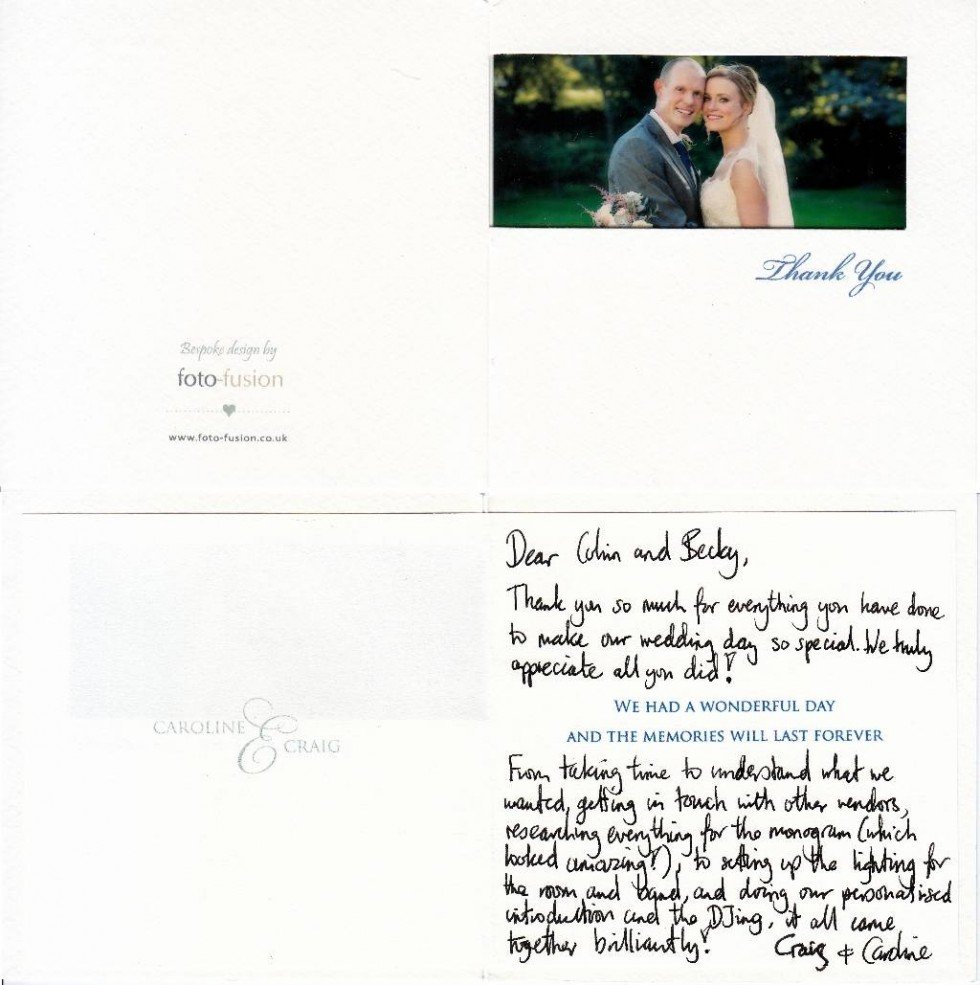 Thank You
Bespoke design by
foto-fusion
www.foto-fusion.co.uk
CAROLINE & CRAIG
Dear Colin and Becky,
Thank you so much for everything you have done
to make our wedding day so special. We truly
appreciate all you did!
WE HAD A WONDERFUL DAY
AND THE MEMORIES WILL LAST FOREVER
From taking time to understand what we
wanted, getting in touch with other vendors,
researching everything for the monogram (which
looked amazing!), to setting up the lighting for
the room and band, and doing our personalised
introduction and the DJing, it all came
together brilliantly!
Craig & Caroline